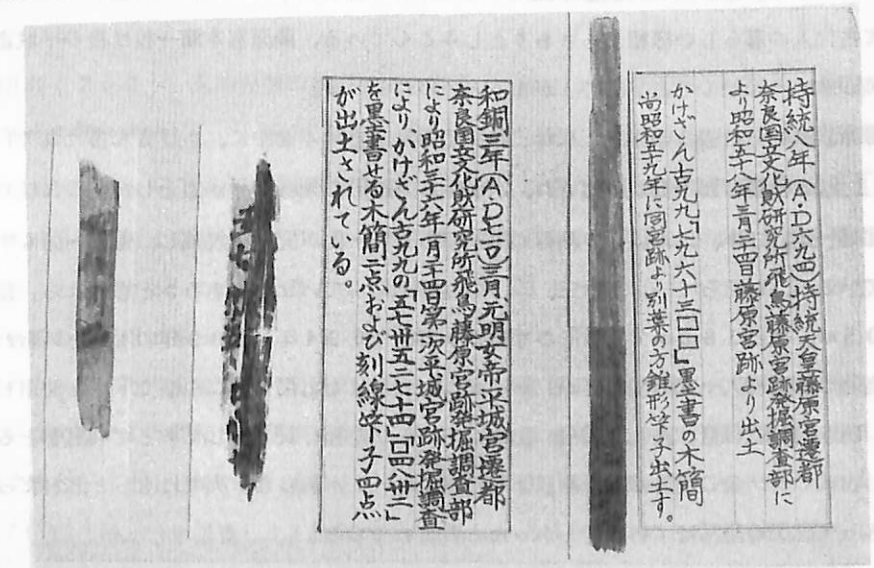 持統八年(A・D六九四)持統天皇藤原宮遷都
奈良国立文化財研究所飛鳥藤原宮跡発掘調査部に
より昭和五十八年三月二十四日藤原宮跡より出土
かけざん古九九「七九六十三□□」墨書の木簡
尚昭和五十九年に同宮跡より別葉の方錐形 出土す。
和銅三年(A・D七一〇)三月元明女帝平城宮 都
奈良国立文化財研究所飛鳥藤原宮跡発掘調査部
により昭和三十六年 月二十四日第 次平城宮跡発掘調査
によりかけざん古九九の「五七卅五二七十四」「□四八卅二」
を墨書せる木簡二点および刻線 子四点
が出土されている。